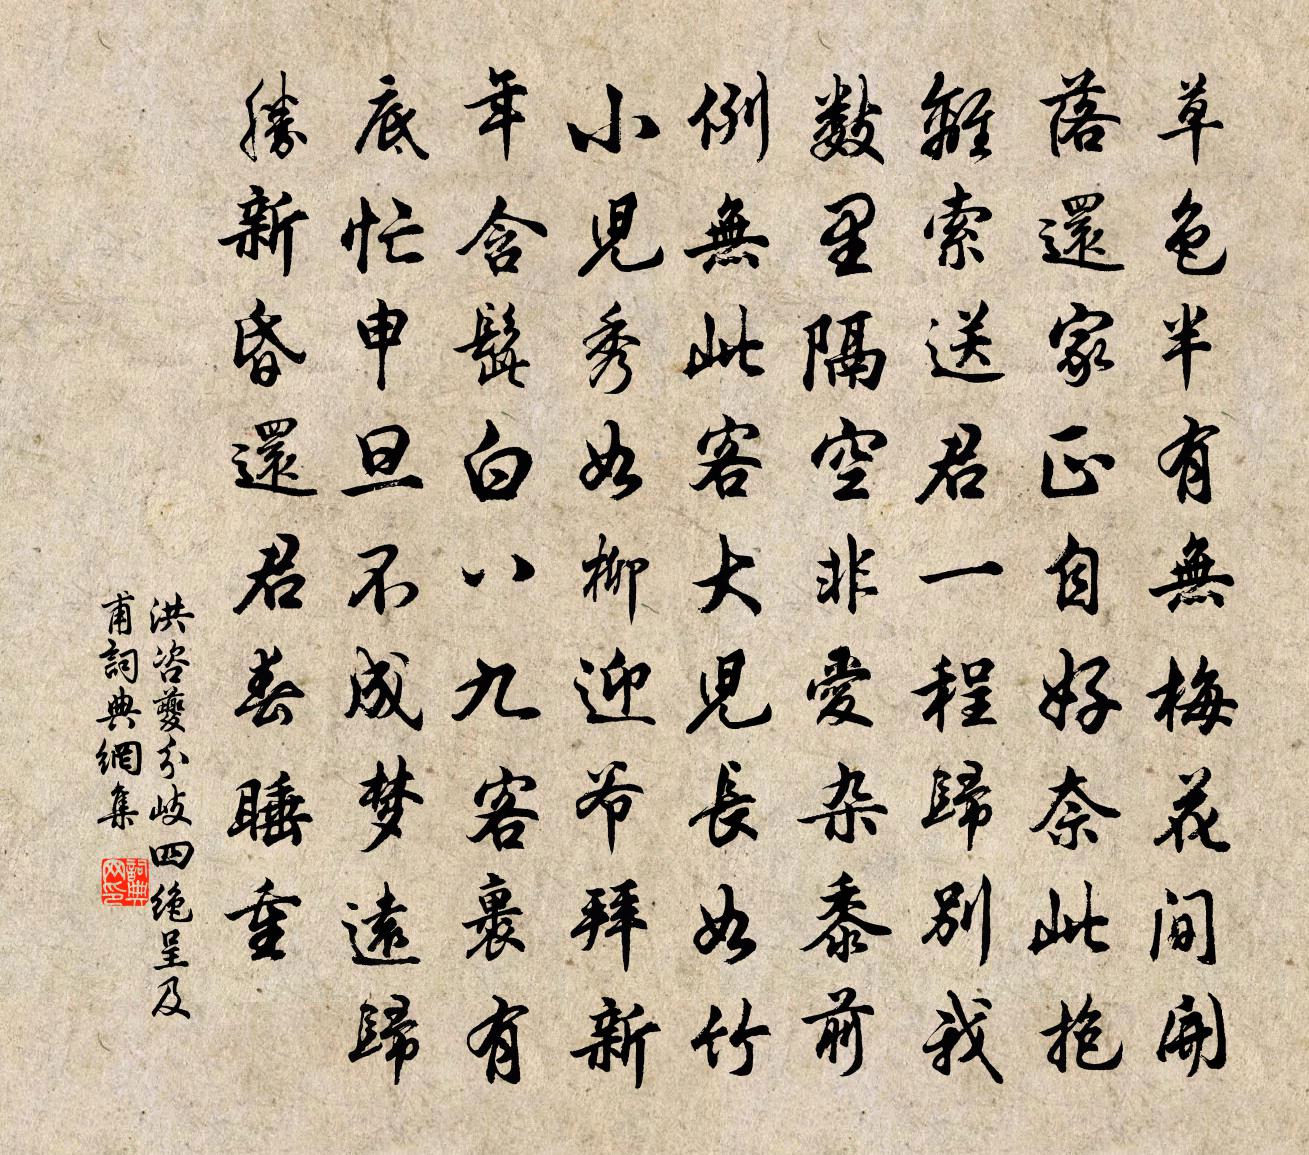 草色半有無梅花間開
落還家正自好奈此抱
離索送君一程歸別我
數里隔空非愛杂黍前
例無此客大兒長如竹
小兒秀如柳迎爷拜新
年含髭白八九客裹有
底忙申旦不成梦遠歸
勝新昏還君春睡重
洪咨夔分岐四絶呈及
甫詞典網集
詞典网印